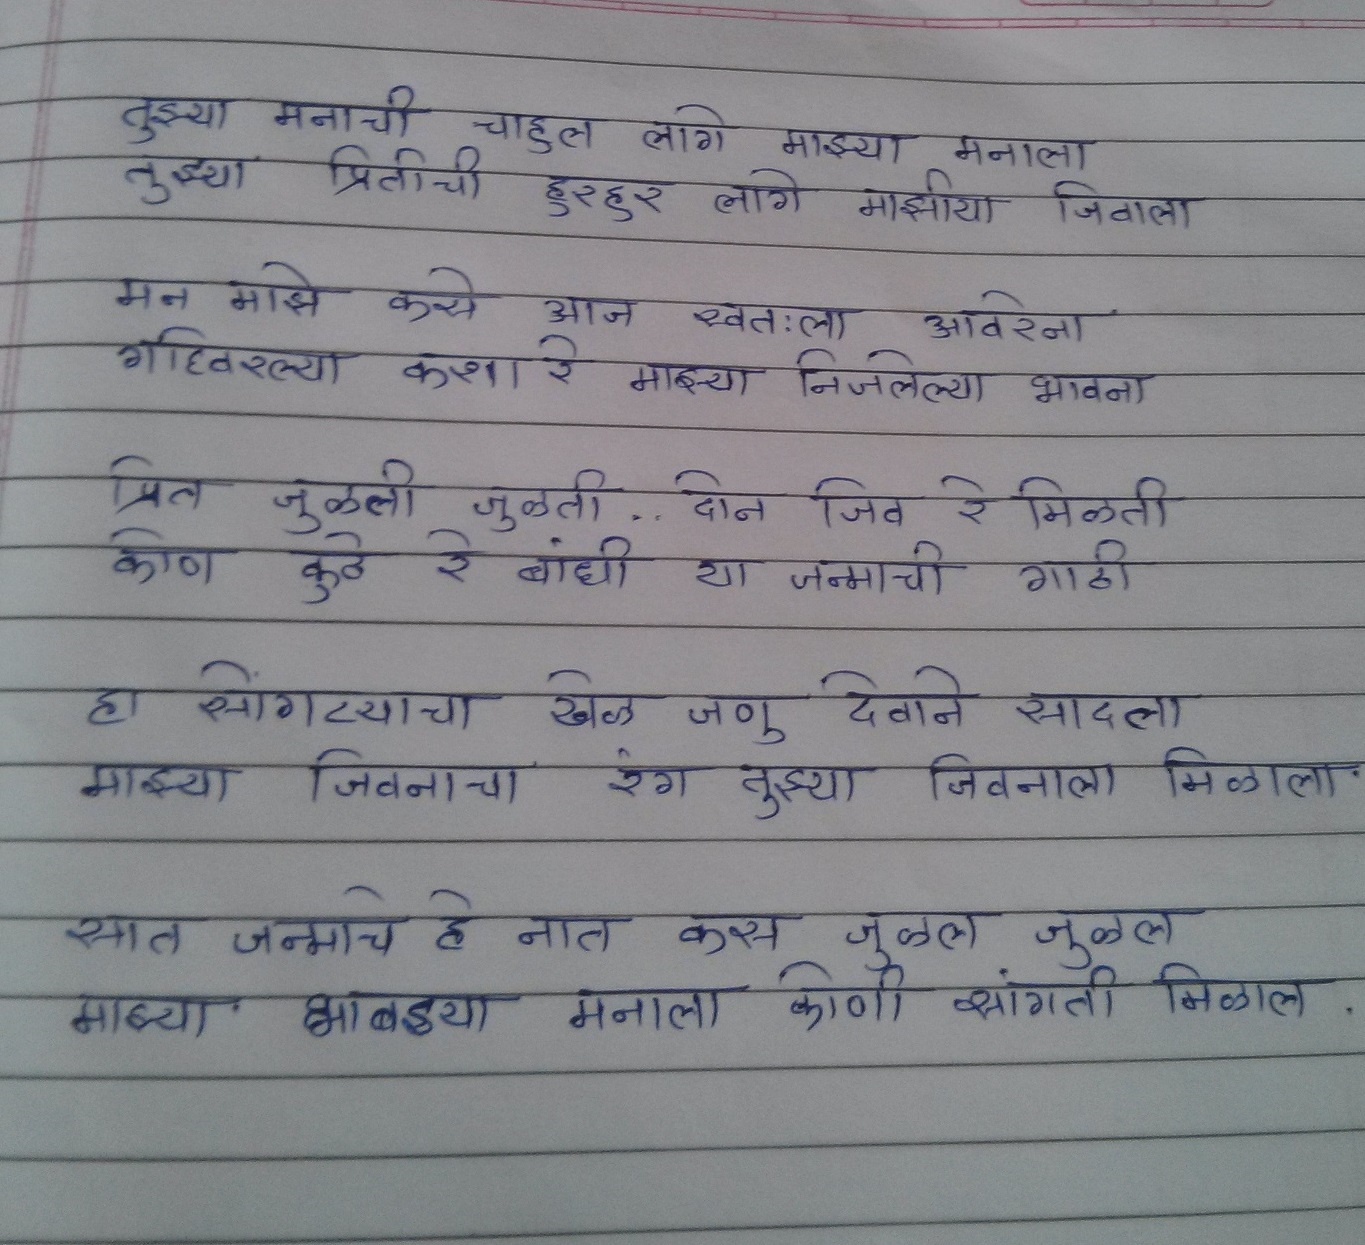 तुझ्या मनाची चाहुल लागे माझ्या मनाला
तुझ्या प्रितीची हुरहुर लागे माझीया जिवाला
मन माझे कसे आज स्वतःला आवरेना
गहिवरल्या कशा रे माझ्या निजलेल्या भावना
प्रित जुळली जुळती .. दोन जिव रे मिळती
कोण कुठे रे बांधी या जन्माची गाठी
हा सोंगट्याचा खेळ जणु देवाने सादला
माझ्या जिवनाचा रंग तुझ्या जिवनाला मिळाला
सात जन्माचे हे नात कस जुळल जुळल
माझ्या भाबड्या मनाला कोणी सांगती मिळाल .